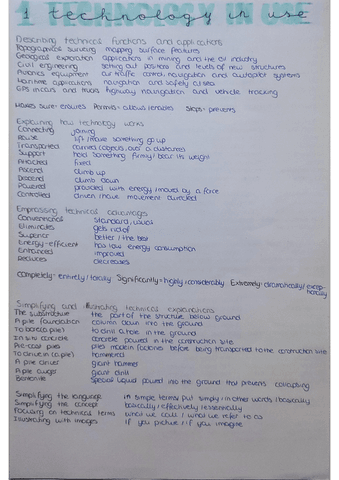 1 TECHNOLOGY IN USE
technology in use
Describing technical functions and applications
Topographical surveying mapping surface features
Geological exploration applications in mining and the oil industry
Civil engineering setting out positions and levels of new structures
Avionics equipment air traffic control, navigation and autopilot systems
Maritime applications navigation and safety at sea
GPS in cars and trucks highway navigation and vehicle tracking
Makes sure - ensures Permits - allows/enables Stops - prevents
Explaining how technology works
Connecting joining
Raise lift/make something go up
Transported carried (objects, over a distance)
Support hold something firmly/bear its weight
Attached fixed
Ascend climb up
Descend climb down
Powered provided with energy/moved by a force
Controlled driven/have movement directed
Emphasising technical advantages
Conventional standard, usual
Eliminates gets rid of
Superior better/the best
Energy-efficient has low energy consumption
Enhanced improved
Reduces decreases
Completely - entirely/totally Significantly - highly/considerably Extremely - dramatically/exceptionally
Simplifying and illustrating technical explanations
The substructure the part of the structure below ground
A pile foundation column down into the ground
To bore (a pile) to drill a hole in the ground
In situ concrete concrete poured in the construction site
Pre-cast piles piles made in factories before being transported to the construction site
To drive in (a pile) hammered
A pile driver giant hammer
A pile auger giant drill
Bentonite special liquid poured into the ground that prevents collapsing
Simplifying the language in simple terms/put simply/in other words/basically
Simplifying the concept basically/effectively/essentially
Focusing on technical terms what we call/what we refer to as
Illustrating with images if you picture/if you imagine